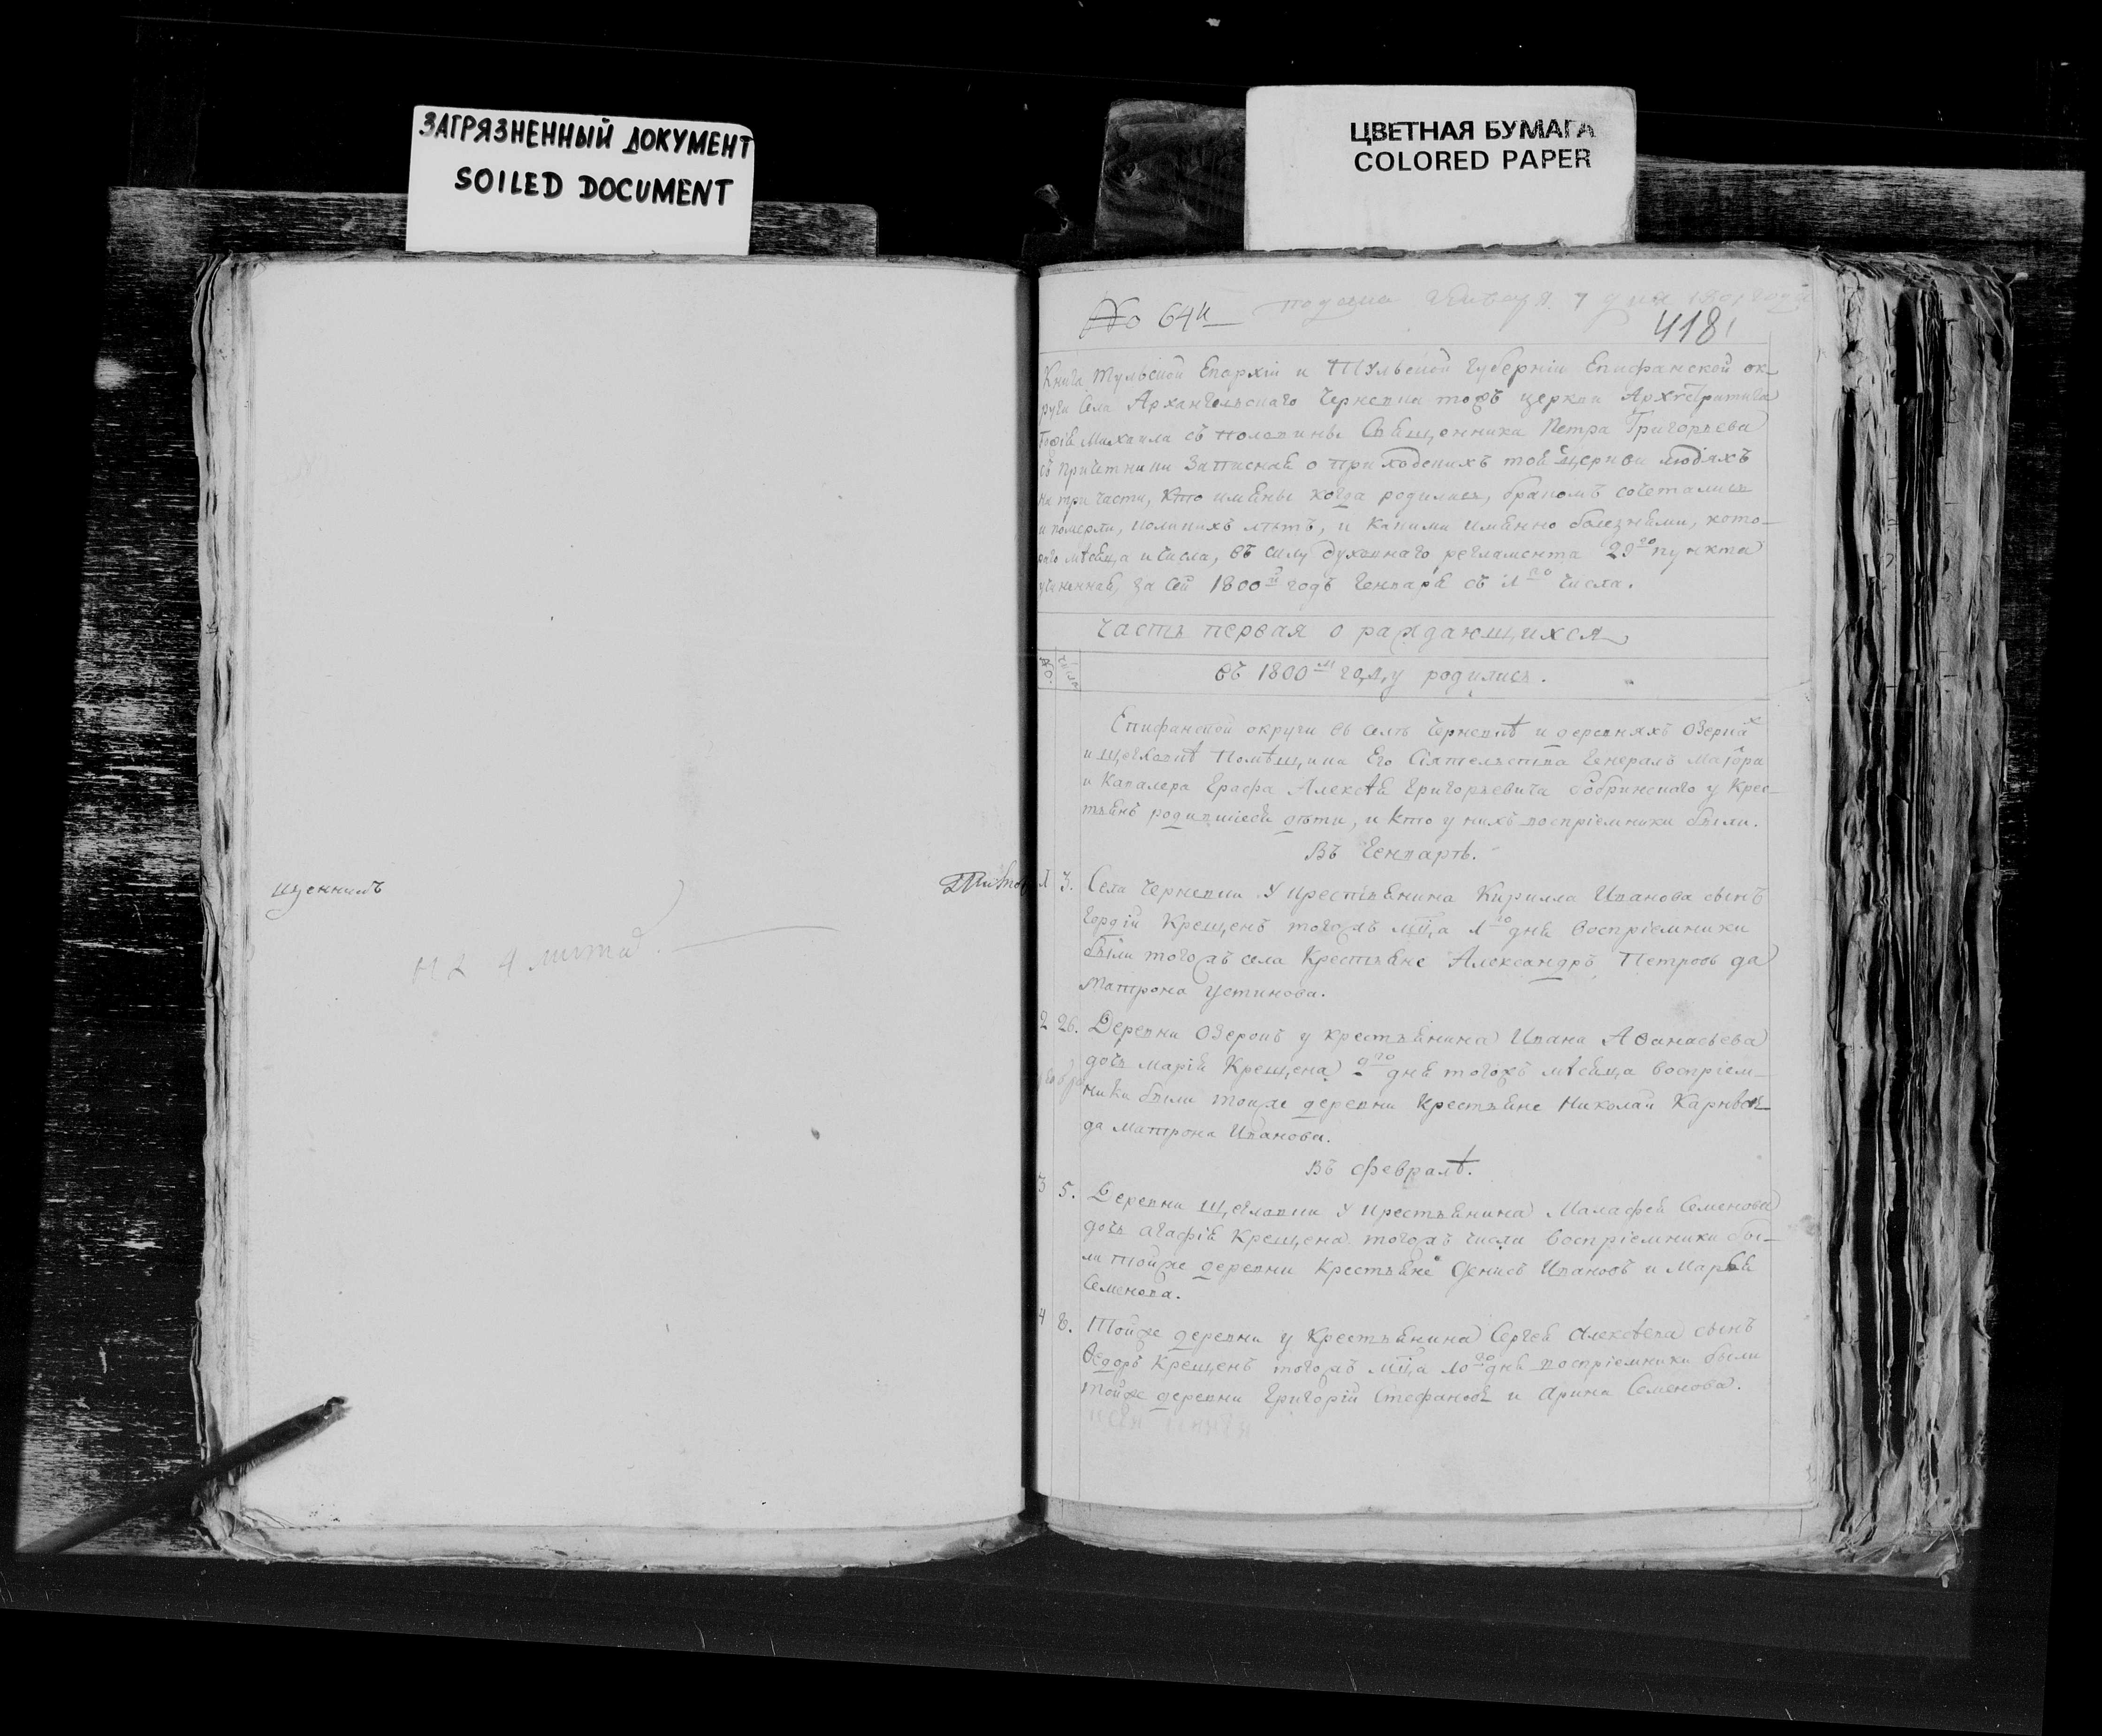 ЗАГРЯЗНЕННЫЙ ДОКУМЕНТ
SOILED DOCUMENT
ЦВЕТНАЯ БУМАГА
COLORED PAPER
щенникъ
на 4 листа
№ 64й подана 7 дня года
418
Книга Тульской Епархіи и Тульской губерніи Епифанской ок-
руги Села Архангельскаго Черневка тожъ церкви
Михаила съ половины Священника Петра Григорьева
съ причетники записная о приходскихъ той церкви людяхъ
на три части, кто имяны когда родились, бракомъ сочетались
и померли, коликихъ лѣтъ, и какими имянно болезнями, кото-
раго мѣсяца и числа, въ силу духовнаго регламента 29го пункта
учиненная, за сей 1800й годъ Генваря съ 1го числа.
Часть первая о раждающихся
№. числа
въ 1800м году родились.
Епифанской округи въ селѣ Черневкѣ и деревняхъ Озерках
и Щегловкѣ Помѣщика Его Сіятельства Генералъ Маіора
и Кавалера Графа Алексѣя Григорьевича Бобринскаго у Крес-
тьянъ родившіеся дѣти, и кто у нихъ воспріемники были.
Въ Генварѣ.
1 3. Села Черневки у крестьянина Кирилла Иванова сынъ
Гордій Крещенъ тогожъ мца дня Воспріемники
были тогожъ села Крестьяне Александръ Петровъ да
Матрона Устинова.
2 26. Деревни Озерокъ у крестьянина Ивана Аѳанасьева
дочь Марія Крещена дня тогожъ мѣсяца Воспріем-
ники были тоиже деревни Крестьяне Николай
да Матрона Иванова.
Въ Февралѣ.
3 5. Деревни Щегловки у крестьянина Малафея Семенова
дочь Агафія Крещена тогожъ числа Воспріемники бы-
ли тойже деревни Крестьяне Денисъ Ивановъ и Марья
Семенова.
4 8. Тойже деревни у Крестьянина Сергея Алексѣева сынъ
Ѳедоръ Крещенъ тогожъ мца 10го дня воспріемники были
тойже деревни Григорій Стефановъ и Арина Семенова.